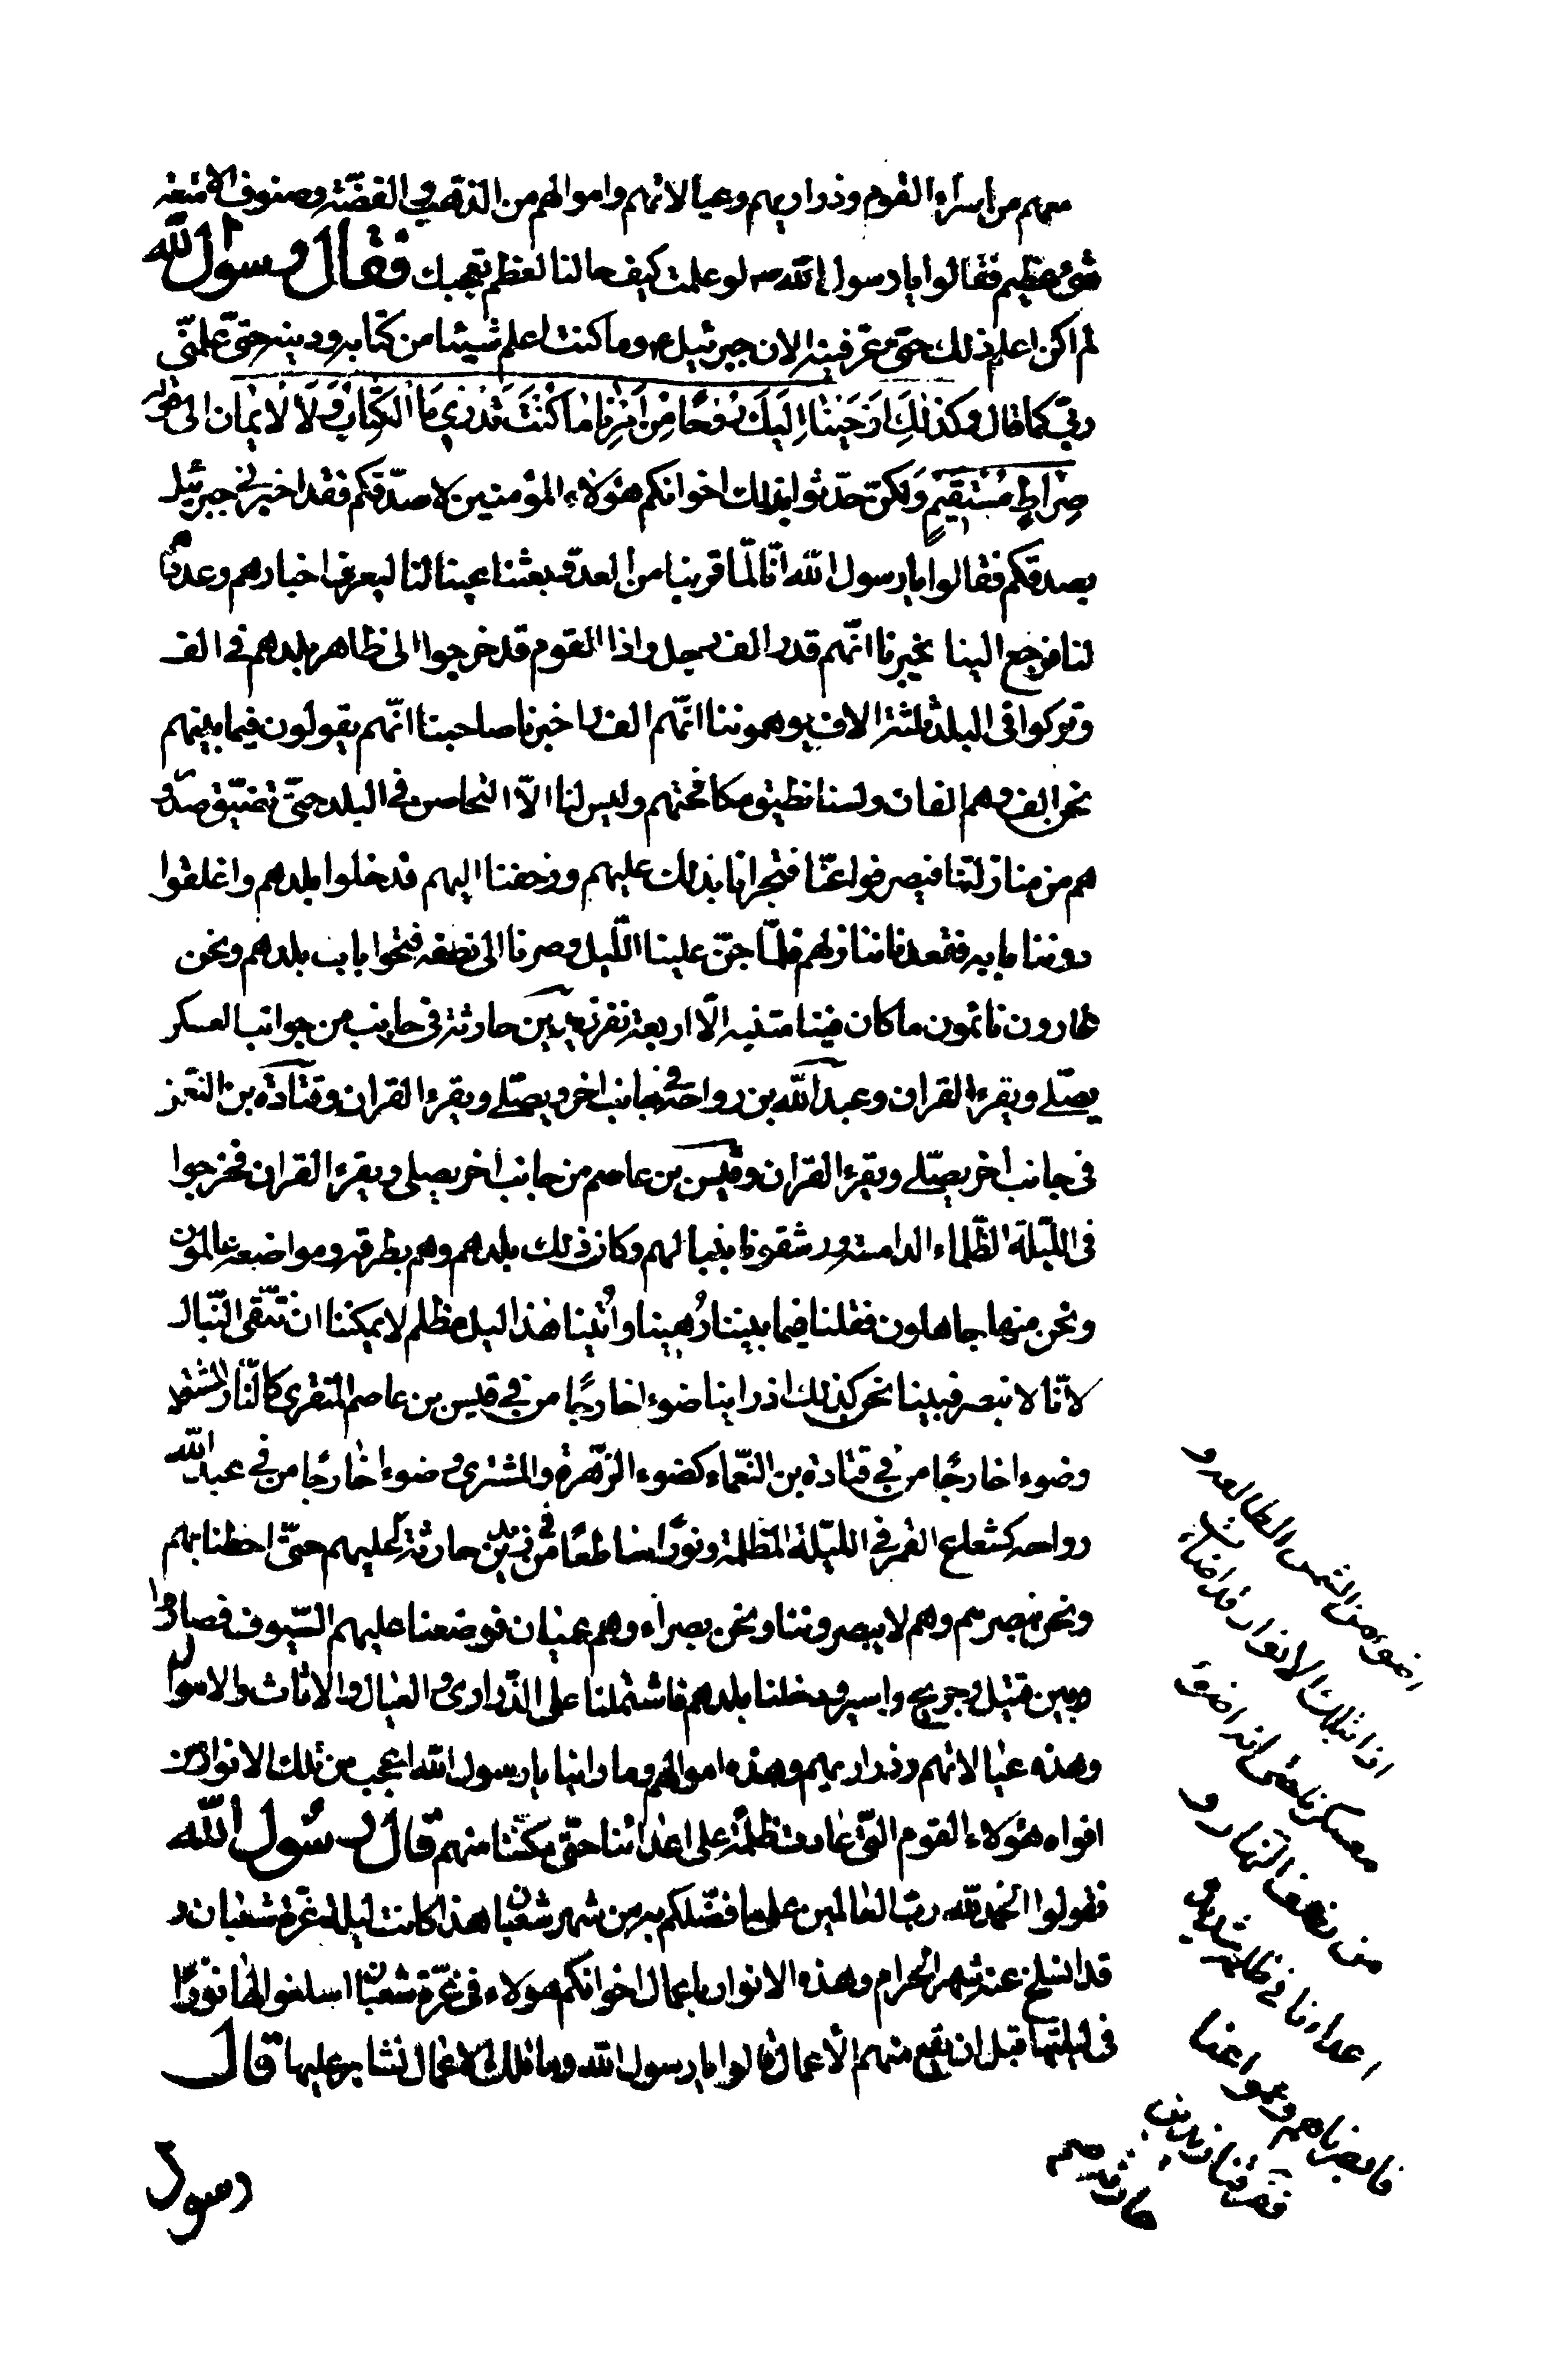 معهم من أسراء القوم وذراريهم وعيالاتهم واموالهم من الذهب والفضّة وصنوف الامتعة
شئ عظيم فقالوا يا رسول الله ص لو علمت كيف حالنا لعظم تعجبك فقال رسول الله
لم اكن اعلم ذلك حتى عرفنيه الان جبرئيل ع وما كنت اعلم شيئا من كتابه ودينه حتى علمني
ربي كما قال وكذلك اوحينا اليك روحا من امرنا ما كنت تدري ما الكتاب ولا الايمان الى قوله
صراط مستقيم ولكن حدّثوا بذلك اخوانكم هؤلاء المؤمنين لاصدّقكم فقد اخبرني جبرئيل
بصدقكم فقالوا يا رسول الله انّا لمّا قربنا من العدو بعثنا عينا لنا ليعرف اخبارهم وعددهم
لنا فرجع الينا يخبرنا انّهم قدر الف رجل واذا القوم قد خرجوا الى ظاهر بلدهم في الف
وتركوا في البلد ثلثة الاف يوهموننا انّهم الف واخبرنا صاحبنا انّهم يقولون فيما بينهم
نحن الف وهم الفان ولسنا نطيق مكافحتهم وليس لنا الّا التحاصن في البلد حتى تضيق صدور
هم من منازلتنا فينصرفوا عنّا فتجرانا بذلك عليهم وزحفنا اليهم فدخلوا بلدهم واغلقوا
دوننا بابه فقعدنا ننازلهم فلمّا جنّ علينا اللّيل وصرنا الى نصفه فتحوا باب بلدهم ونحن
غارون نائمون ما كان فينا منتبه الّا اربعة نفر زيد بن حارثة في جانب من جوانب العسكر
يصلّي ويقرء القران وعبد الله بن رواحة في جانب اخر يصلّي ويقرء القران وقتادة بن النعمن
في جانب اخر يصلّي ويقرء القران وقيس بن عاصم من جانب اخر يصلي ويقرء القران فخرجوا
في اللّيلة الظلماء الدامسة ورشقونا بنبالهم وكان ذلك بلدهم وهم بطرقه ومواضعه عالمون
ونحن منها جاهلون فقلنا فيما بيننا دُهينا واُتينا هذا ليل مظلم لا يمكننا ان نتّقي النّبال
لانّا لا نبصر فبينا نحن كذلك اذ راينا ضوءا خارجًا من في قيس بن عاصم المنقري كالنّار المشتعلة
وضوءا خارجًا من في قتادة بن النعماء كضوء الزّهرة والمشترى وضوءا خارجًا من في عبد الله
رواحه كشعاع القمر في الليلة المظلمة ونورًا ساطعًا من في زيد بن حارثة عليهم حتى احطنا بهم
ونحن نبصرهم وهم لا يبصروننا ونحن بصراء وهم عميان فوضعنا عليهم السّيوف فصاروا
بين قتيل وجريح واسير ودخلنا بلدهم فاشتملنا على الذراري والعيال والاثاث والاموال
وهذه عيالاتهم وذراريهم وهذه اموالهم وما راينا يا رسول الله اعجب من تلك الانوار من
افواه هؤلاء القوم التي عادت ظلمة على اعدائنا حتى مكنّا منهم قال رسول الله
فقولوا الحمد لله ربّ العالمين على ما فضّلكم به من شهر شعبان هذا كانت ليلة غرّة شعبان و
قد انسلخ عنه شهر الحرام وهذه الانوار باعمال اخوانكم هؤلاء في غرّة شعبان اسلفوا لها نورًا
في ليلتها قبل ان يقع منهم الاعمال قالوا يا رسول الله وما تلك الاعمال نثابر عليها قال
رسول
اضوء من الشمس الطالعة و
اذا بتلك الانوار قد اضاءت
معسكرنا حتى انه اضوء
من نصف النهار و
اعداءنا في ظلمة شديدة
فابصرناهم وعموا عنا
ففرقنا زيد بن
حارثة عليهم